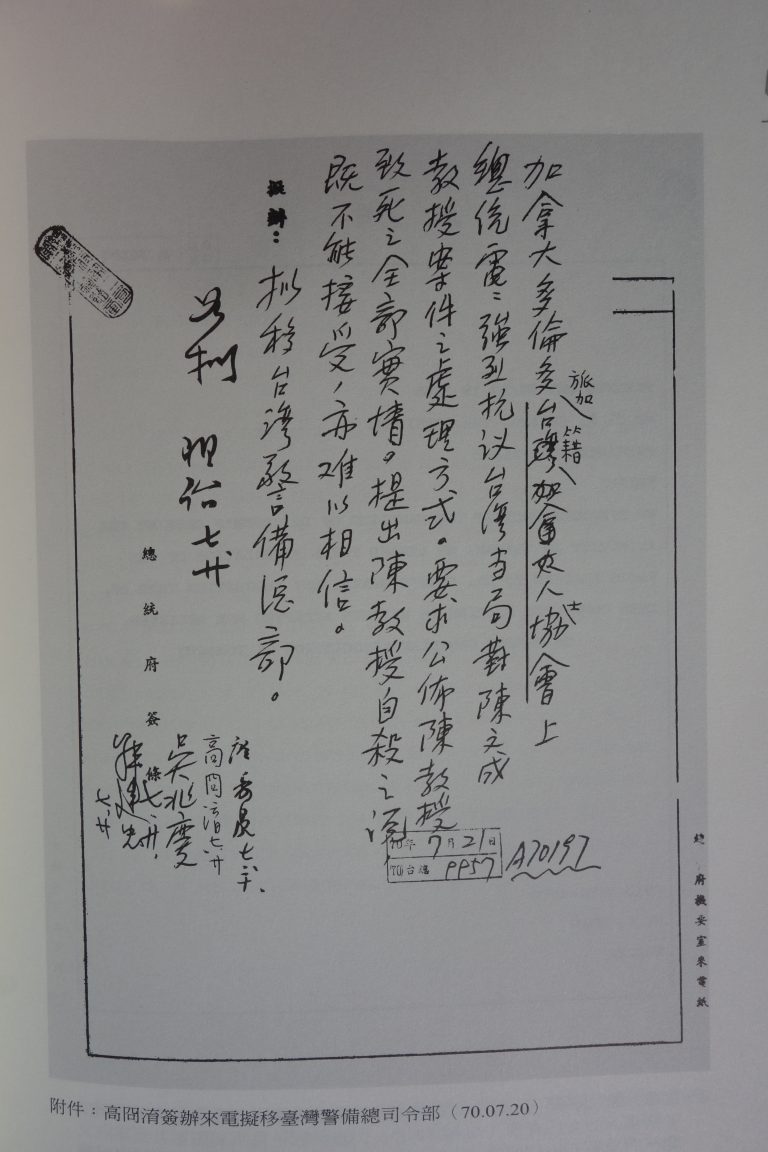 加拿大多倫多台灣加拿大人協會上
旅加
籍
士
總統電：強烈抗议台湾当局對陳文成
教授案件之處理方式。要求公佈陳教授
致死之全部實情。提出陳教授自殺之說，
既不能接受，亦難以相信。
擬辦：拟移台湾警備總部。
如拟
七、廿
總統府簽條
高冏
七、廿
吳兆慶
七、廿
七、廿
70年7月21日
(70)台
A70197
總 府機要室來電紙
附件：高冏淯簽辦來電擬移臺灣警備總司令部（70.07.20）